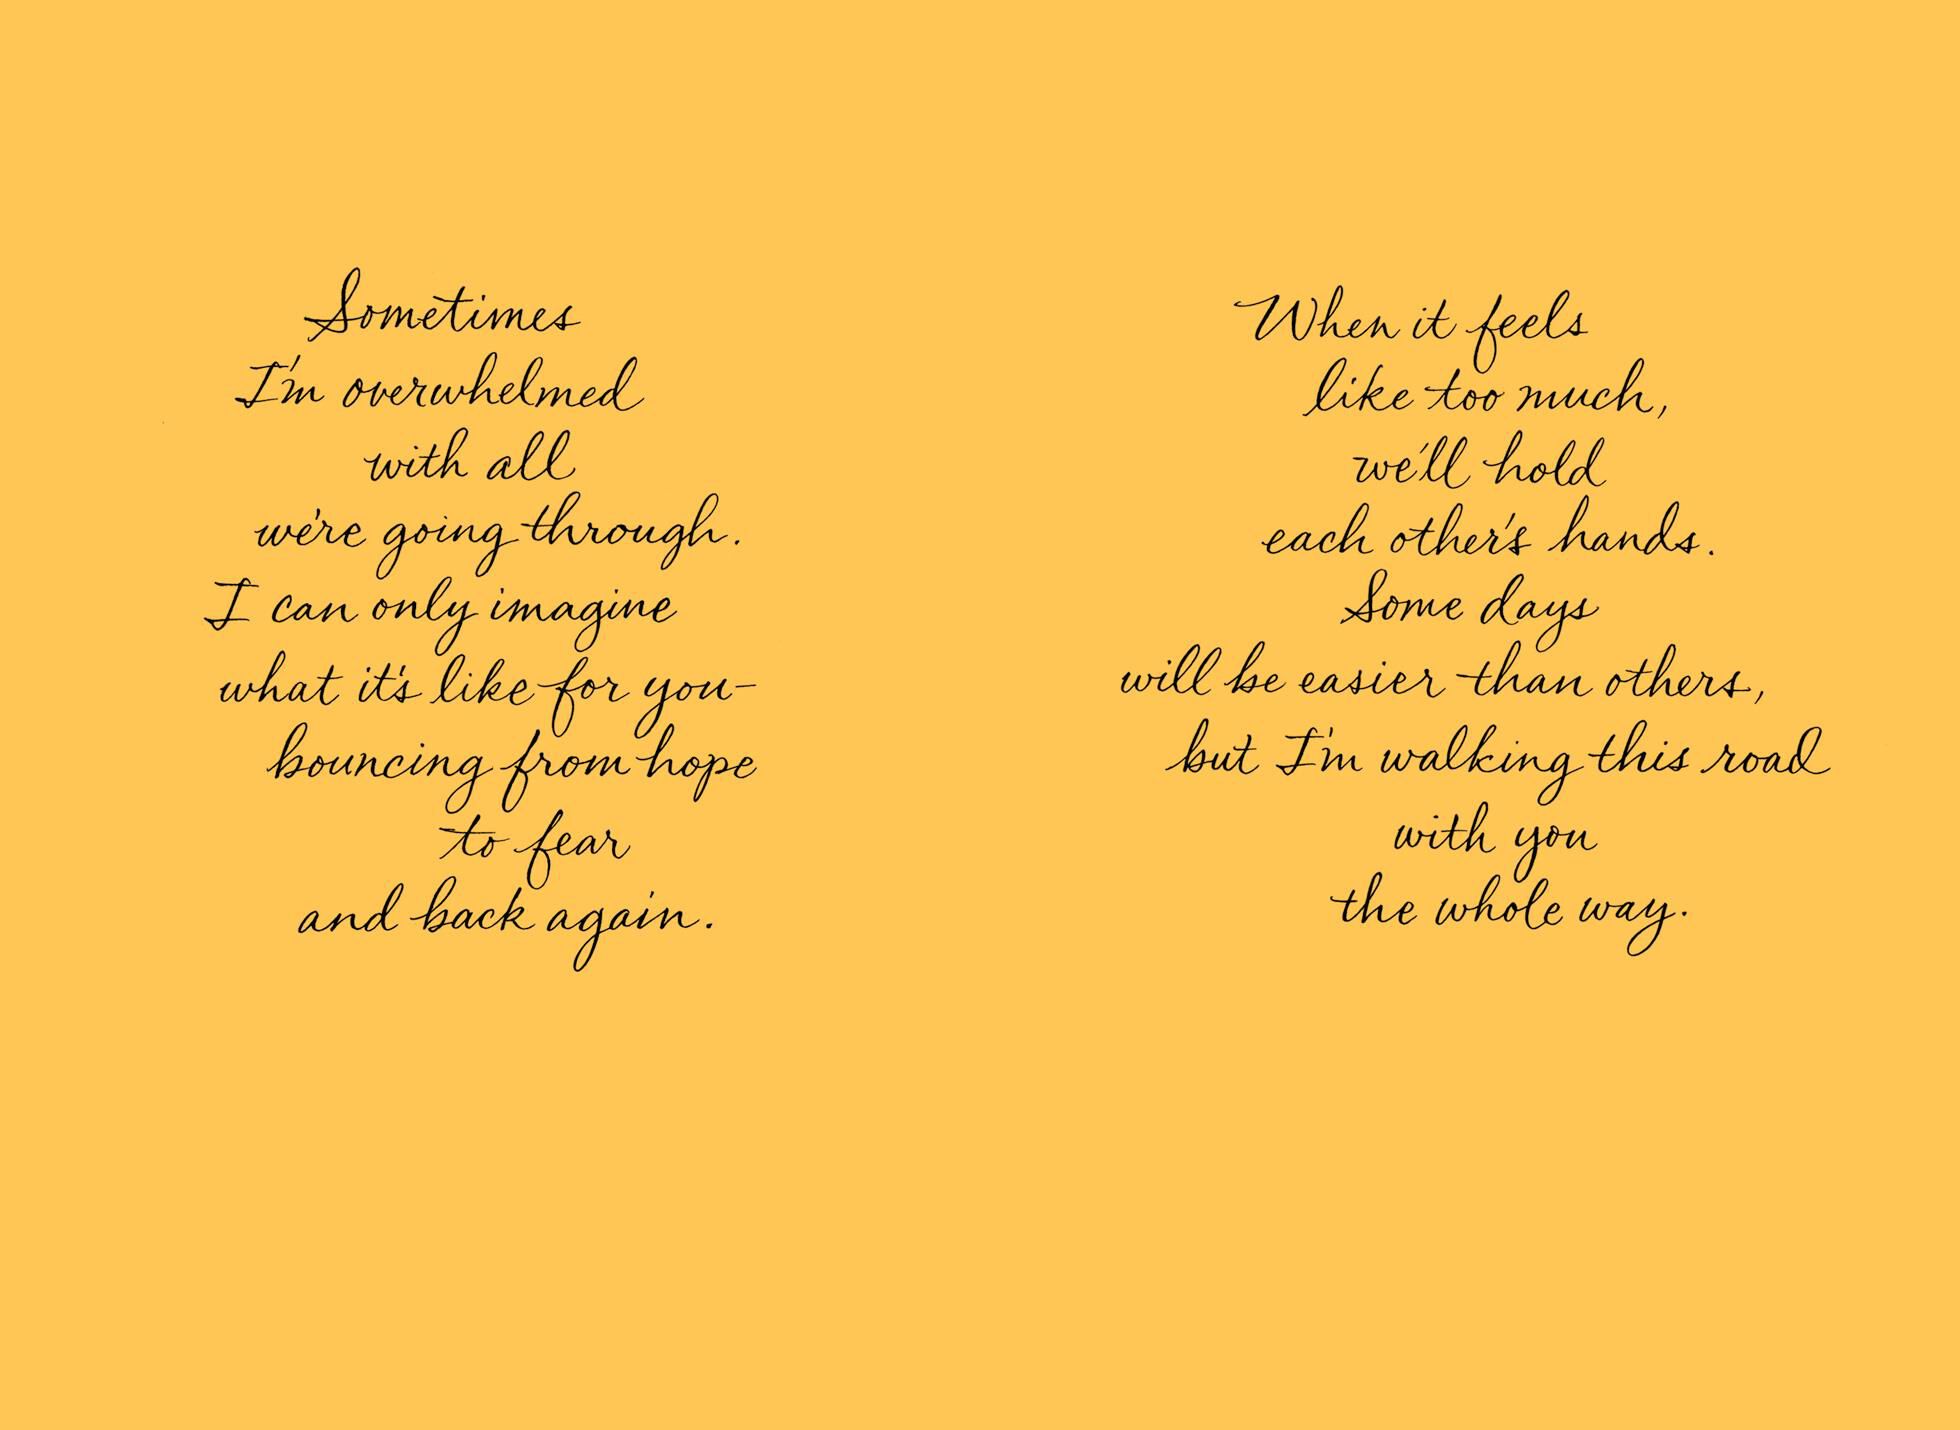 Sometimes
I'm overwhelmed
with all
we're going through.
I can only imagine
what it's like for you–
bouncing from hope
to fear
and back again.
When it feels
like too much,
we'll hold
each other's hands.
Some days
will be easier than others,
but I'm walking this road
with you
the whole way.